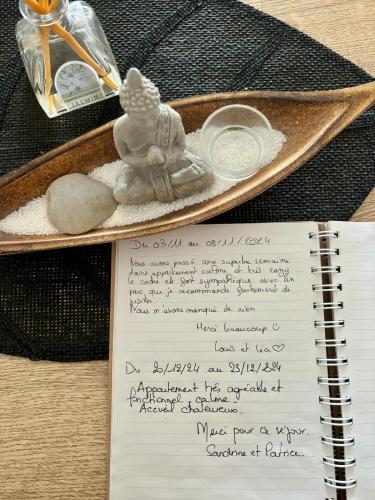 JASMIN
Du 03/11 au 08/11/2024
Nous avons passé une superbe semaine
dans appartement calme et très cosy
le cadre est fort sympathique avec son
parc, que je recommande fortement de
visiter.
Nous n'avons manqué de rien
Merci beaucoup
Louis et Léa
Du 20/12/24 au 23/12/2024
Appartement très agréable et
fonctionnel, calme.
Accueil chaleureux.
Merci pour ce séjour.
Sandrine et Patrice.